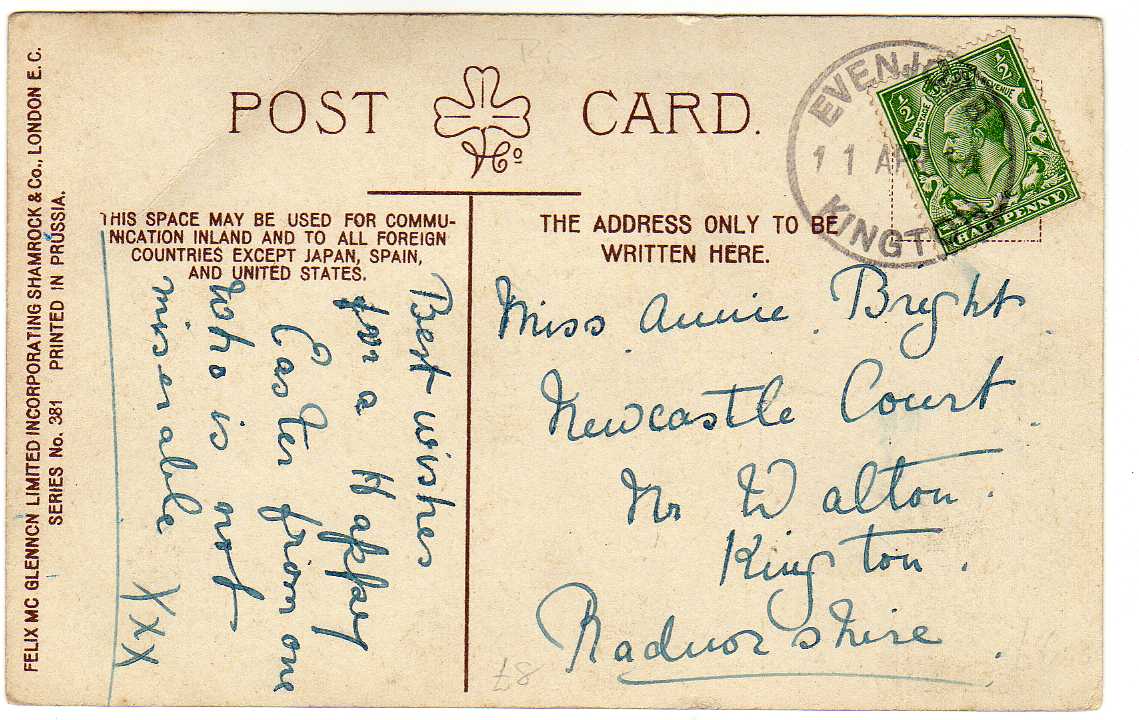 POST CARD.
THIS SPACE MAY BE USED FOR COMMU-
NICATION INLAND AND TO ALL FOREIGN
COUNTRIES EXCEPT JAPAN, SPAIN,
AND UNITED STATES.
THE ADDRESS ONLY TO BE
WRITTEN HERE.
Best wishes
for a Happy
Easter from one
who is not
miserable XXX
Miss Annie Bright
Newcastle Court
Nr Walton.
Kington.
Radnorshire.
KINGTON
11 AP
½ ½
POSTAGE REVENUE
HALFPENNY
FELIX MC GLENNON LIMITED INCORPORATING SHAMROCK & Co., LONDON E. C.
SERIES No. 381 PRINTED IN PRUSSIA.
£8